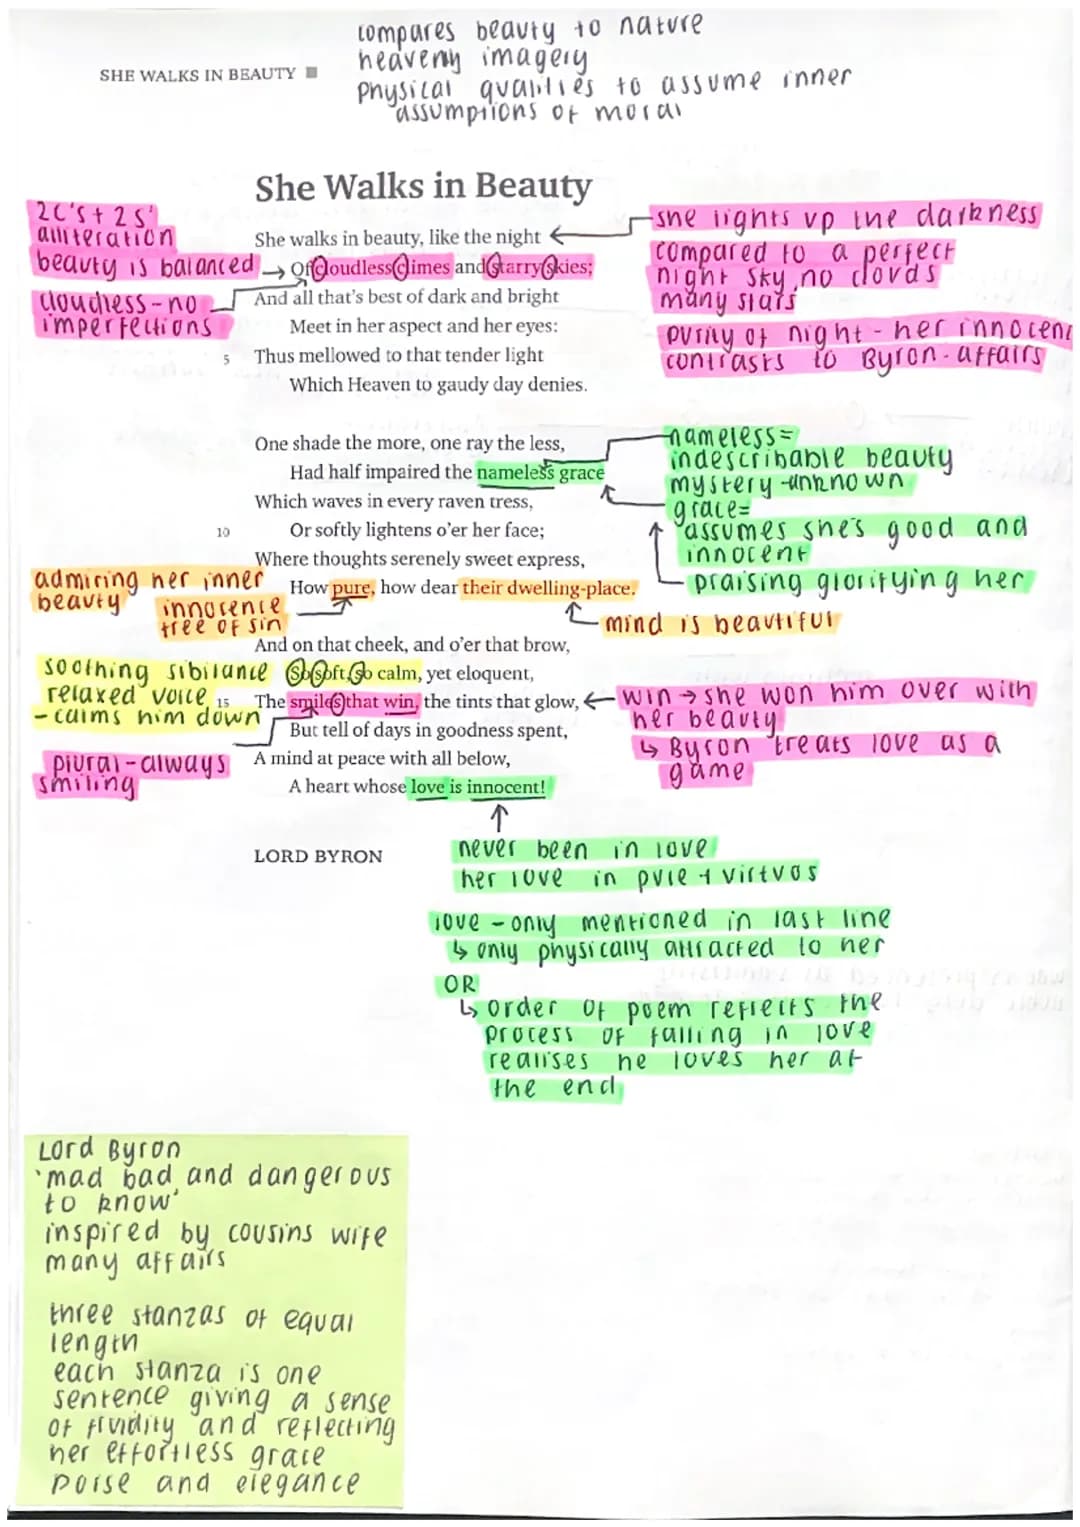 compares beauty to nature
heavenly imagery
physical qualities to assume inner
assumptions of moral
SHE WALKS IN BEAUTY
She Walks in Beauty
2C's + 2 S'
alliteration
beauty is balanced
cloudless - no
imperfections
She walks in beauty, like the night
Of cloudless climes and starry skies;
And all that's best of dark and bright
Meet in her aspect and her eyes:
5 Thus mellowed to that tender light
Which Heaven to gaudy day denies.
she lights up the darkness
compared to a perfect
night sky, no clouds
many stars
purity of night - her innocen
contrasts to Byron - affairs
One shade the more, one ray the less,
Had half impaired the nameless grace
Which waves in every raven tress,
10 Or softly lightens o'er her face;
Where thoughts serenely sweet express,
How pure, how dear their dwelling-place.
nameless =
indescribable beauty
mystery - unknown
grace =
assumes she's good and
innocent
praising glorifying her
admiring her inner
beauty
innocence
free of sin
mind is beautiful
And on that cheek, and o'er that brow,
So soft, so calm, yet eloquent,
15 The smiles that win, the tints that glow,
But tell of days in goodness spent,
A mind at peace with all below,
A heart whose love is innocent!
soothing sibilance
relaxed voice
- calms him down
plural - always
smiling
win → she won him over with
her beauty
↳ Byron treats love as a
game
LORD BYRON
never been in love
her love in pure + virtuos
love - only mentioned in last line
↳ only physically attracted to her
OR
↳ order of poem reflects the
process of falling in love
realises he loves her at
the end
Lord Byron
'mad bad and dangerous
to know'
inspired by cousins wife
many affairs
three stanzas of equal
length
each stanza is one
sentence giving a sense
of fluidity and reflecting
her effortless grace
poise and elegance